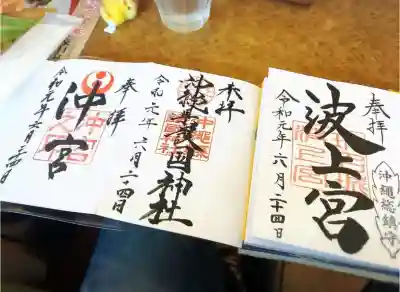 奉拝
波上宮
令和元年六月二十四日
沖縄総鎮守
奉拝
沖縄県護国神社
令和元年六月二十四日
奉拝
沖宮
令和元年六月二十四日